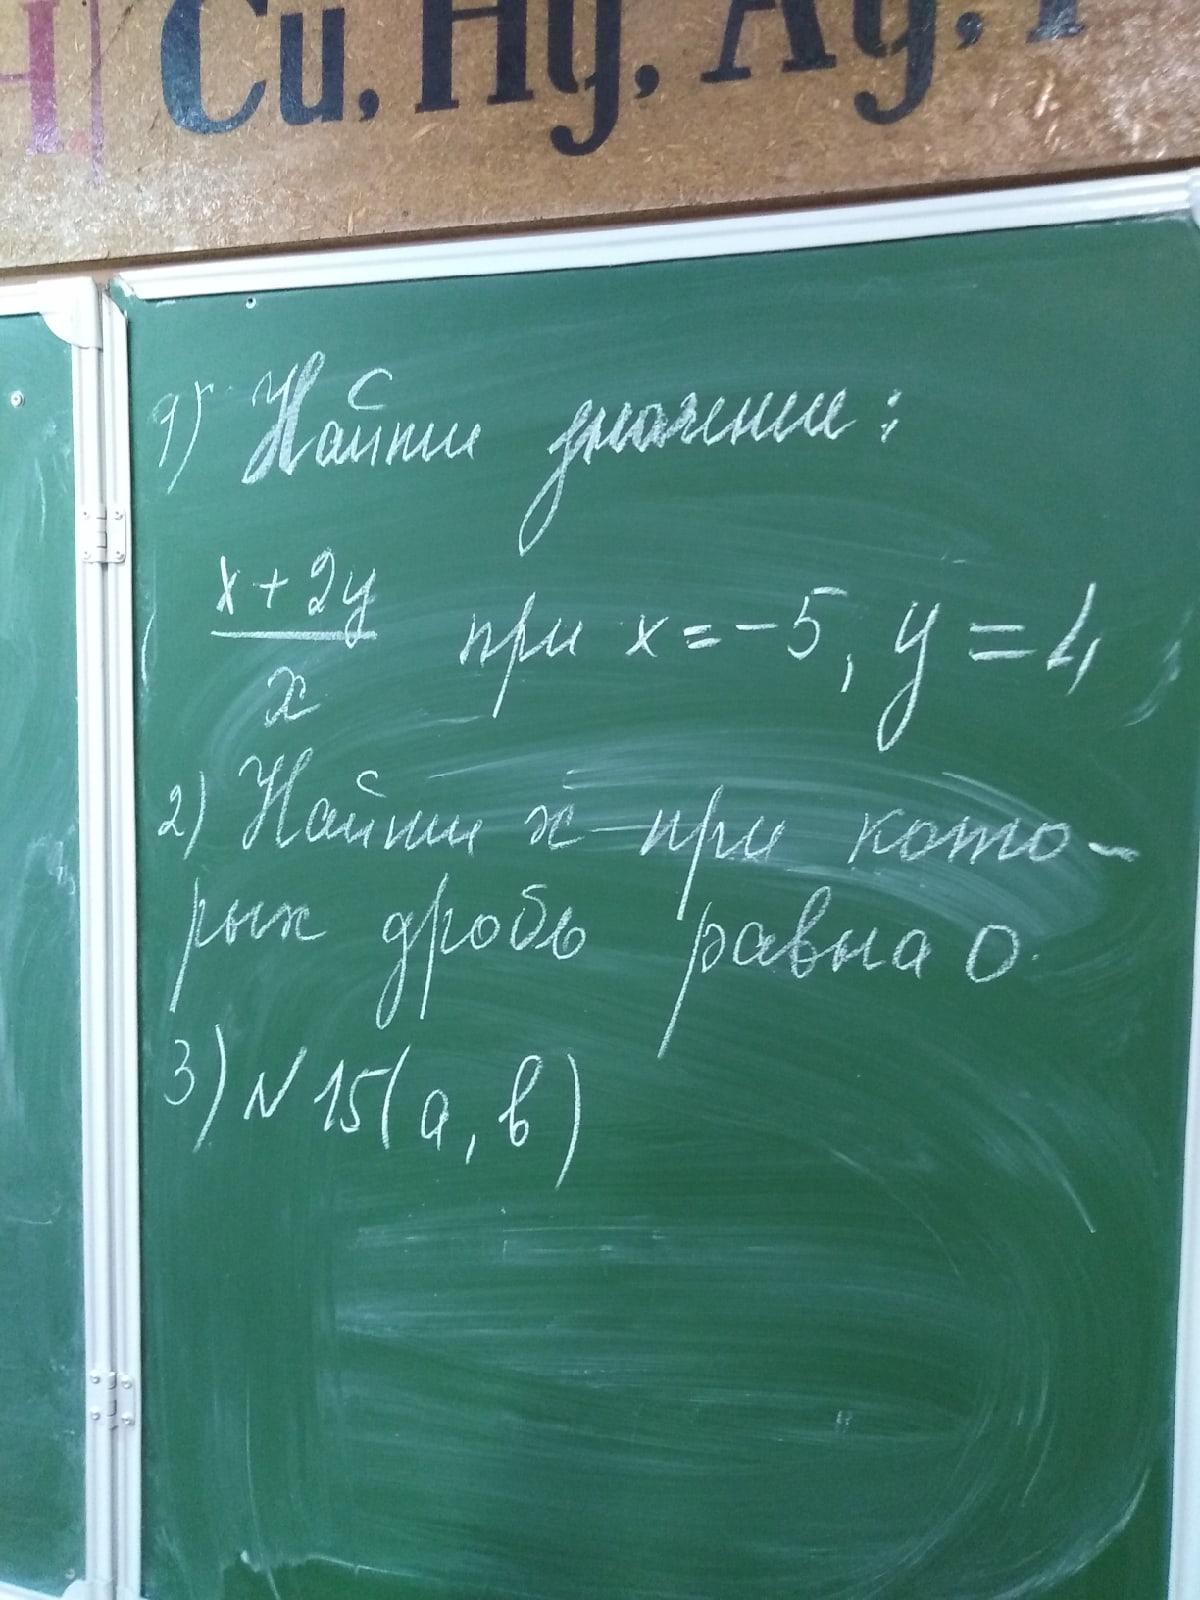 Cu, Hg, Ag,
1) Найти значение:
x + 2y
x
при x = -5, y = 4
2) Найти x при кото-
рых дробь равна 0.
3) N 15 (а, в)